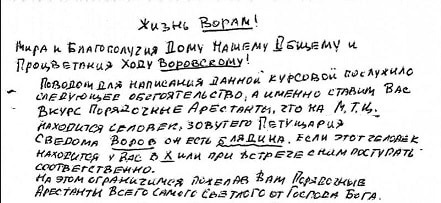 Жизнь Ворам!
Мира и Благополучия Дому Нашему Общему и
Процветания Ходу Воровскому!
Поводом для написания данной курсовой послужило
следующее обстоятельство, а именно ставим Вас
вкурс Порядочные Арестанты, что на М.Т.Ц.
находится человек, зовут его Петущария
сведома Воров он есть блядина. Если этот человек
находится у Вас в Х или при встрече с ним поступать
соответственно.
На этом ограничимся пожелав Вам Порядочные
Арестанты Всего Самого Светлого от Господа Бога.